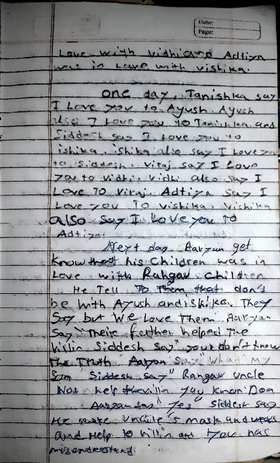 Date:
Page:
Love with vidhi and Adtiya
was in love with vishika.
one day, Tanishka say
I Love you to Ayush Ayush
also I Love you to Tanishka and
Siddesh say I Love you to
ishika ishika also say I Love you
to Siddesh. Viraj say I Love
you to vidhi vidhi also say I
Love To Viraj. Adtiya say I
Love you To vishika. Vishika
also say I Love you to
Adtiya.
Next day Aaryan get
know that his Children was in
Love with Rahgav children
He Tell To them that don't
be with Ayush and ishika. They
Say but We Love them Aaryan
Say "Their farther helped the
villin Siddesh say" you don't knew
the Truth Aaryan say "What my
Son" Siddesh say" Rahgav uncle
Not help the villin you know Don
Aaryan say "Yes" Siddesh say
He make uncle's mask and
and Help to villin and You has
misunderstand.